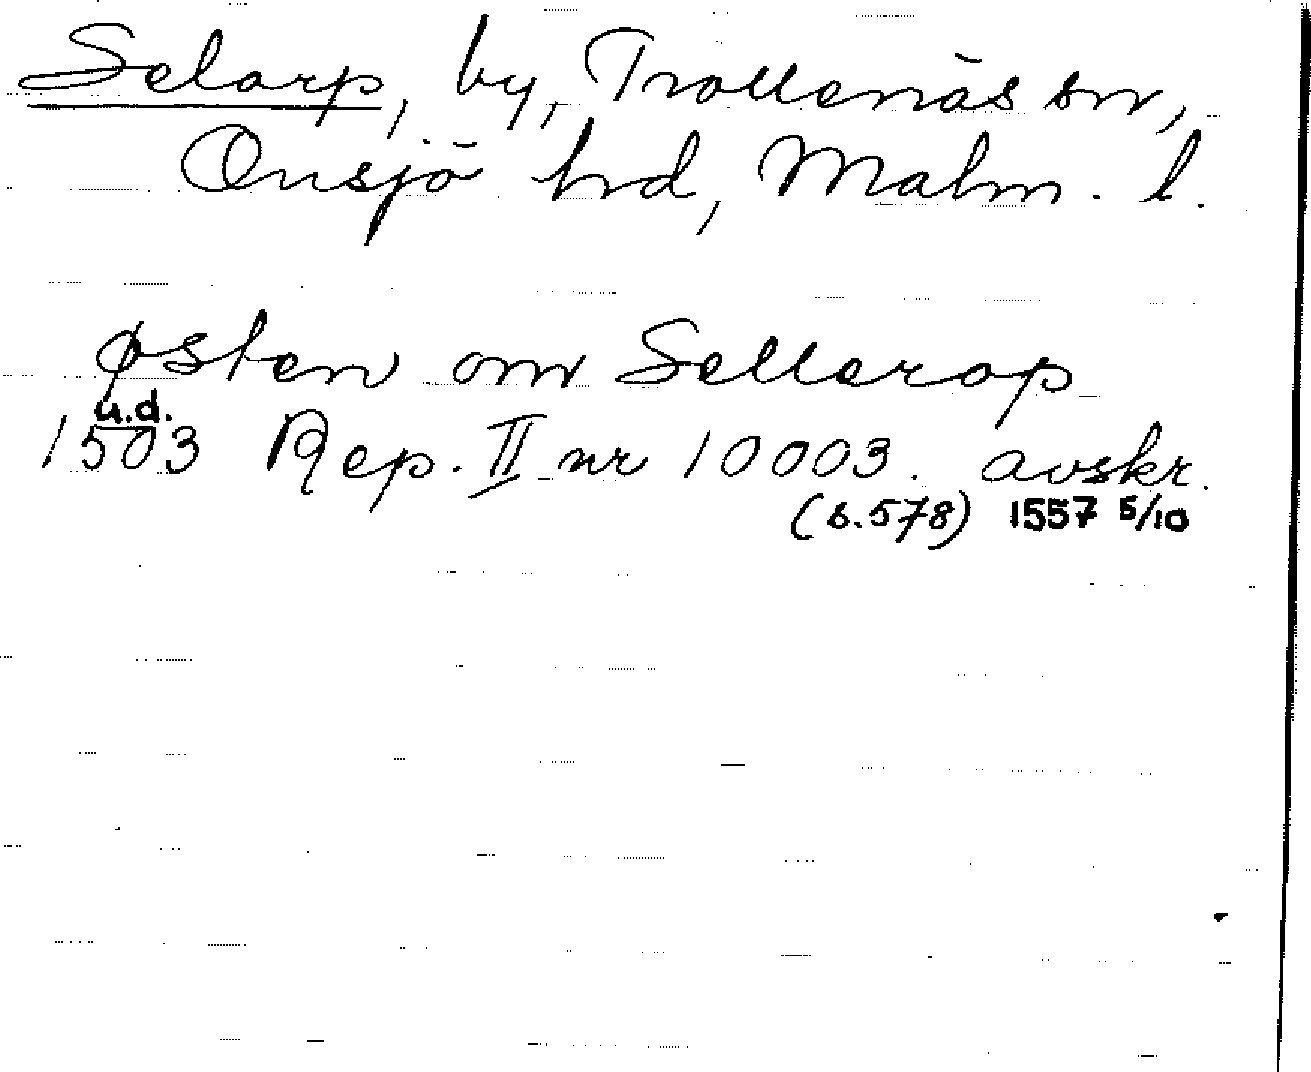 Selarp, by, Trollenäs sn,
Onsjö hd, Malm. l.
østen om Sellerop
u.d.
1503 Rep. II nr 10003. avskr.
(s. 578) 1557 5/10